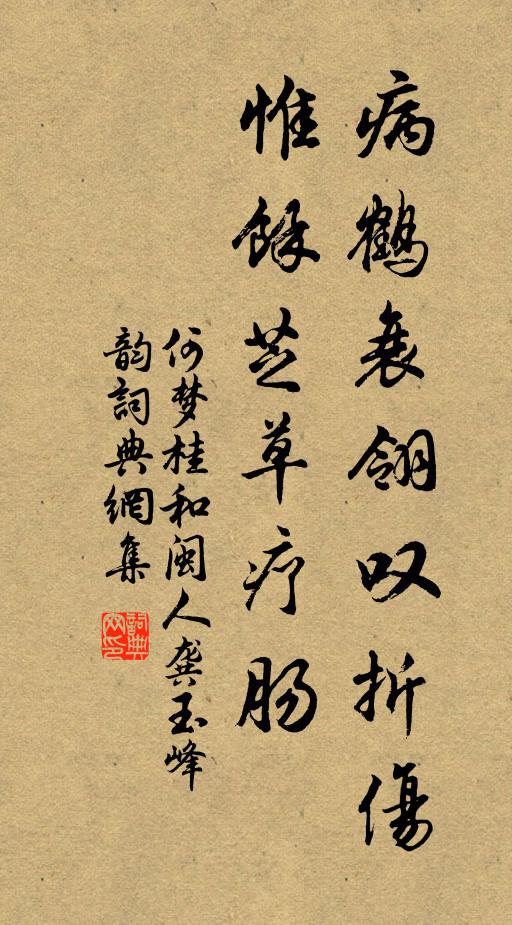 病鹤衰翎叹折傷
惟餘芝草疗肠
何梦桂和闽人龚玉峰
韵詞典網集
詞典網印